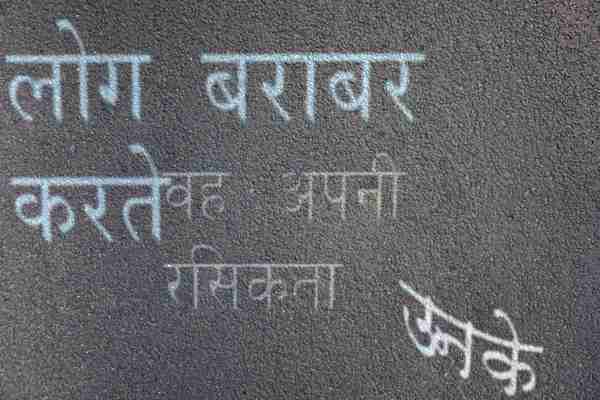 लोग बराबर
करते
वह अपनी
रसिकता
उनके